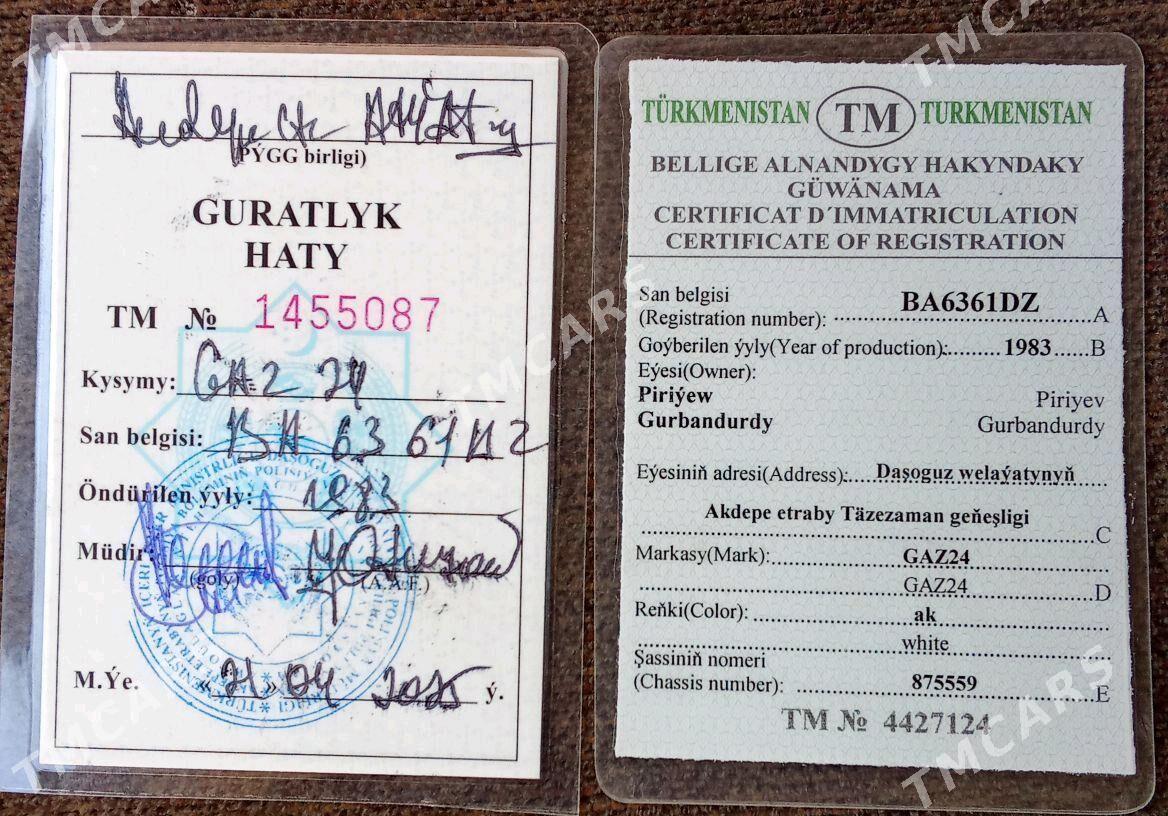 PÝGG birligi)
GURATLYK
HATY
TM № 1455087
Kysymy: GAZ 24
San belgisi: BA 63 61 DZ
Öndürilen ýyly: 1983
Müdir:
(goly) (A.A.F.)
M.Ýe. « 21 » 04 2025 ý.
TÜRKMENISTAN TM TURKMENISTAN
BELLIGE ALNANDYGY HAKYNDAKY
GÜWÄNAMA
CERTIFICAT D´IMMATRICULATION
CERTIFICATE OF REGISTRATION
San belgisi
(Registration number): BA6361DZ A
Goýberilen ýyly(Year of production): 1983 B
Eýesi(Owner):
Piriýew Piriyev
Gurbandurdy Gurbandurdy
Eýesiniň adresi(Address): Daşoguz welaýatynyň
Akdepe etraby Täzezaman geňeşligi
C
Markasy(Mark): GAZ24
GAZ24 D
Reňki(Color): ak
white
Şassiniň nomeri
(Chassis number): 875559 E
TM № 4427124
TMCARS
TMCARS
TMCARS
TMCARS
TMCARS